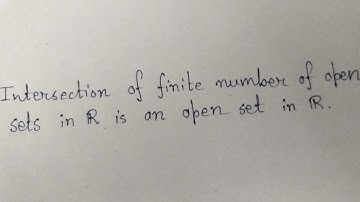 Intersection of finite number of open
sets in ℝ is an open set in ℝ.